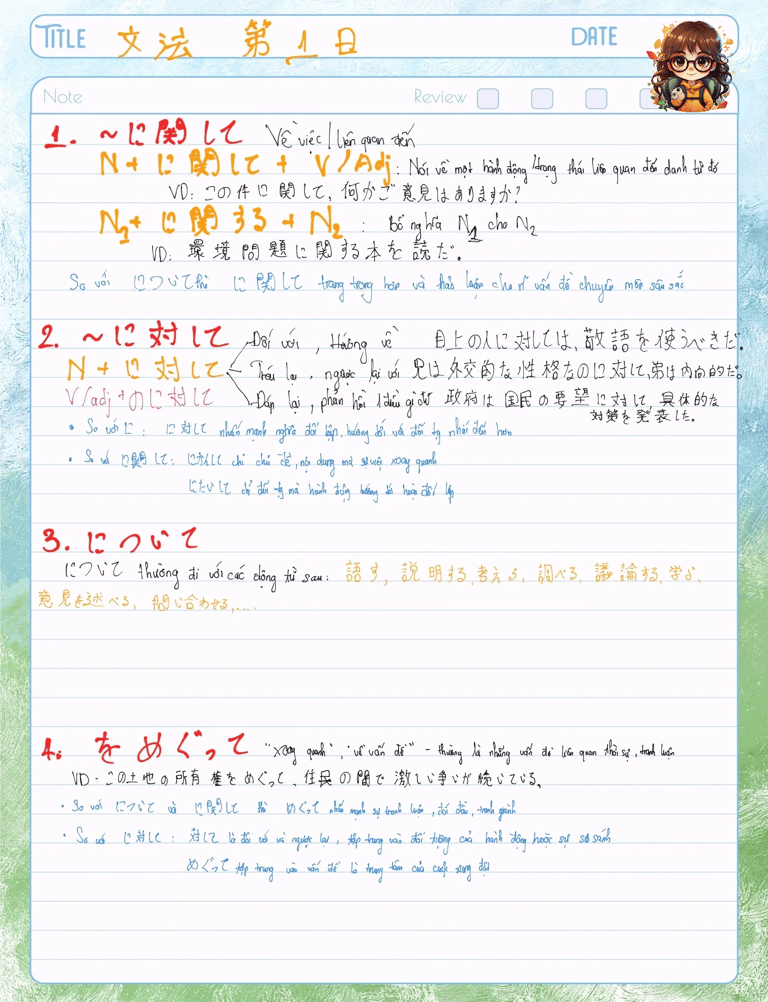 TITLE 文法 第1日 DATE
Note Review
1. ～に関して Về việc / liên quan đến
N + に関して + V/Adj : Nói về một hành động/trạng thái liên quan đến danh từ đó
VD: この件に関して、何かご意見はありますか？
N1 + に関する + N2 : Bổ nghĩa N1 cho N2
VD: 環境問題に関する本を読だ。
So với について thì に関して trang trọng hơn và thảo luận cho vấn đề chuyên môn sâu sắc
2. ～に対して Đối với, Hướng về 目上の人に対しては、敬語を使うべきだ。
N + に対して Trái lại, ngược lại với 兄は外交的な性格なのに対して、弟は内向的だ。
V/adj + のに対して Đáp lại, phản hồi 1 điều gì đó 政府は国民の要望に対して、具体的な
対策を発表した。
• So với に: に対して nhấn mạnh nghĩa đối lập, hướng tới với đối tg nhắc đến hơn
• So với に関して: にかんして chỉ chủ đề, nội dung mà sự việc xoay quanh
にたいして chỉ đối tg mà hành động hướng tới hoặc đối lập
3. について
について thường đi với các động từ sau: 語す, 説明する, 考える, 調べる, 議論する, 学ぶ、
意見を述べる, 問い合わせる,....
4. をめぐって "xoay quanh", "về vấn đề" - thường là những vấn đề liên quan thời sự, tranh luận
VD: この土地の所有権をめぐって、住民の間で激しい争いが続いている。
• So với について và に関して thì めぐって nhấn mạnh sự tranh luận, đối đầu, tranh giành
• So với に対して: 対して là đối với và ngược lại, tập trung vào đối tượng của hành động hoặc sự so sánh
めぐって tập trung vào vấn đề là trung tâm của cuộc xung đột